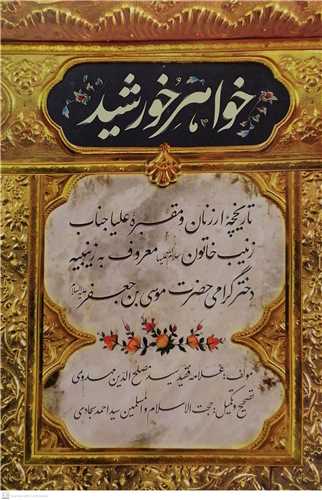 خواهر خورشید
تاریخچهٔ ارزنان و مقبرهٔ علیا جناب
زینب خاتون سلام الله علیها معروف به زینبیه
دختر گرامی حضرت موسی بن جعفر علیه السلام
مؤلف: علامه فقید سید مصلح الدین مهدوی
تصحیح و تکمیل: حجت الاسلام والمسلمین سید احمد سجادی